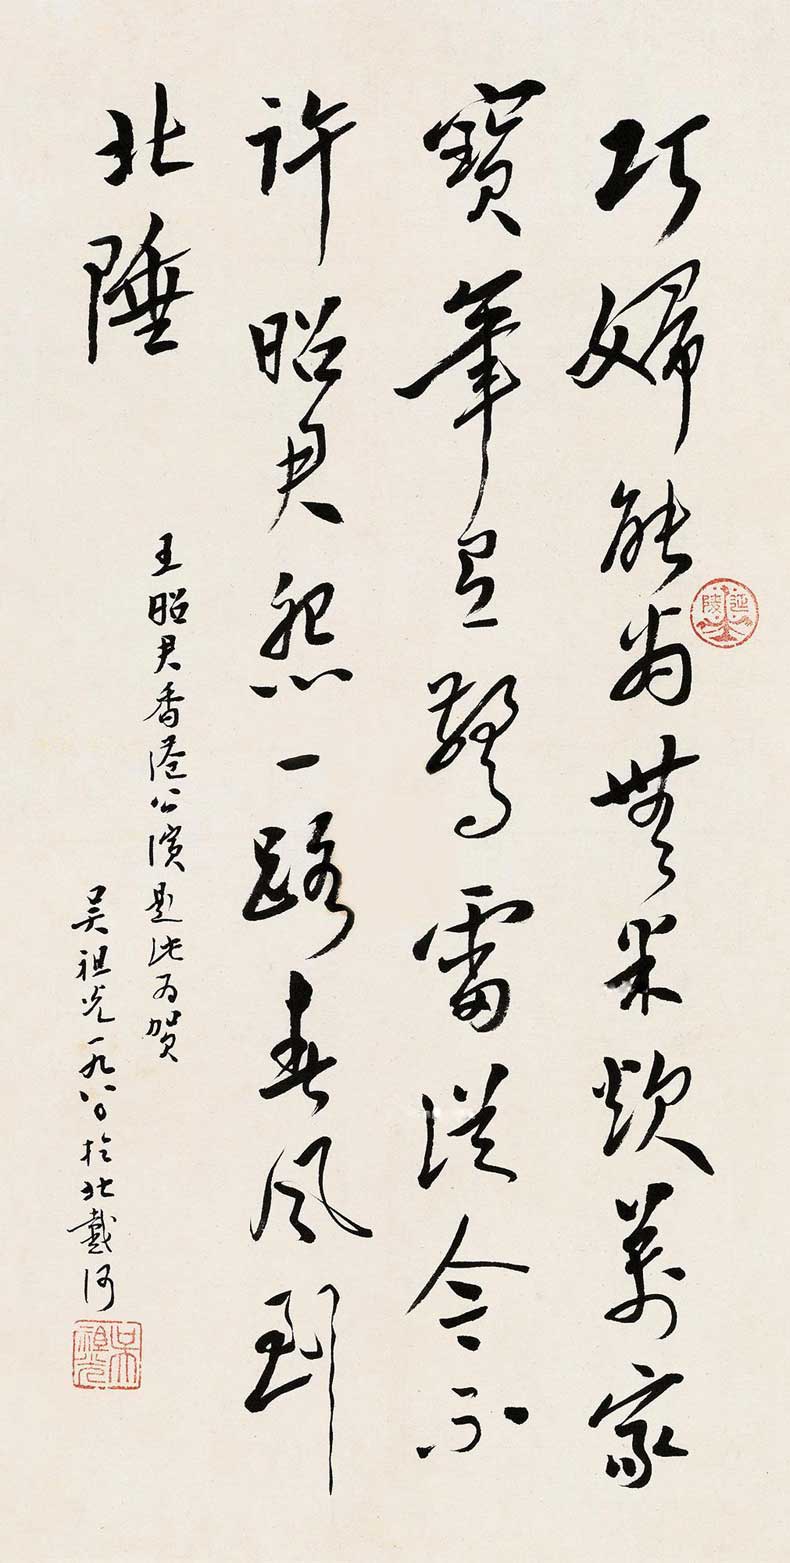 巧婦能為無米炊萬家
寶筆有驚雷從今不
許昭君怨一路春風到
北陲
王昭君香港公演題此为賀
吴祖光一九八〇於北戴河
延陵
吴祖光